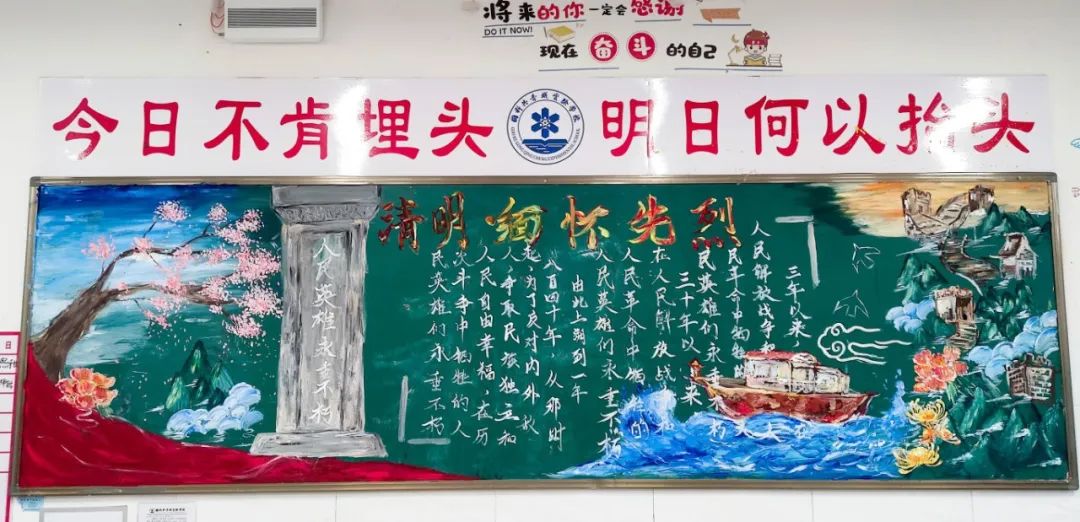 将来的你一定会感谢
DO IT NOW!
现在奋斗的自己
今日不肯埋头 明日何以抬头
国科共青城实验学校
清明 缅怀先烈
人民英雄永垂不朽
三年以来
人民解放战争和
民革命中牺牲的
民英雄们永垂 朽
三十年以来
在人民解放战 和
人民革命中牺牲的
人民英雄们永垂不朽
由此上溯到一年
八百四十年,从那时
起,为了反对内外敌
人,争取民族独立和
人民自由幸福,在历
次斗争中牺牲的人
民英雄们永垂不朽